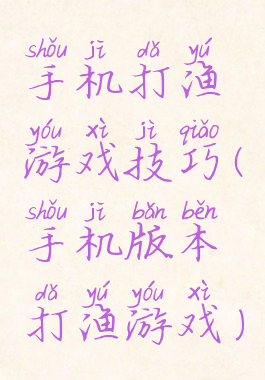 shǒu jī dǎ yú
手机打渔
yóu xì jì qiǎo
游戏技巧(
shǒu jī bǎn běn
手机版本
dǎ yú yóu xì
打渔游戏)